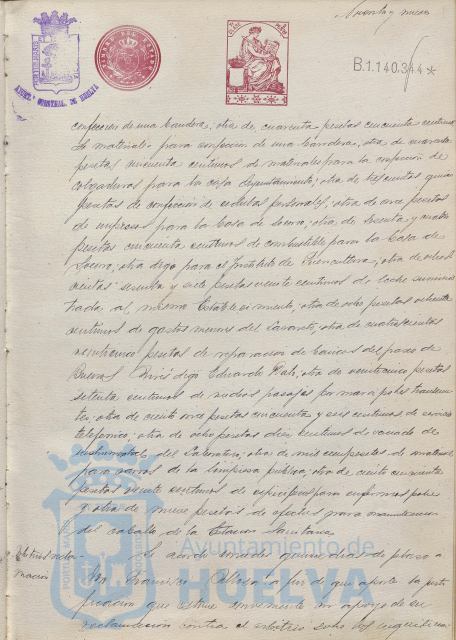 Noventa y nueve
B.1.140.344*
TIMBRE DEL ESTADO
AYUNT. GENERAL. DE HUELVA
confección de una bandera; otra de cuarenta pesetas cincuenta centimos
de materiales para confeccion de una bandera, otra de noventa
pesetas cincuenta centimos de materiales para la confección de
colgaduras para la casa Ayuntamiento; otra de trescientas quince
pesetas de confección de cedulas personales; otra de once pesetas
de impresos para la Casa de Socorro; otra de sesenta y cuatro
pesetas cincuenta centimos de combustible para la Casa de
Socorro; otra digo para el Instituto de Puericultura; otra de
cientas sesenta y siete pesetas veinte centimos de leche suminis
trada al mismo Establecimiento; otra de ocho pesetas ochenta
centimos de gastos menores del Lazareto; otra de cuatrocientas
veinticinco pesetas de reparacion de bancos del paseo de
Buenos Aires digo Eduardo Dato; otra de veinticinco pesetas
setenta centimos de medios pasajes por mar a pobres transeun
tes; otra de ciento once pesetas cincuenta y seis centimos de servicio
telefonico; otra de ocho pesetas diez centimos de
instrumental del Laboratorio; otra de mil cien pesetas de material
para carros de la limpieza publica; otra de ciento cincuenta
pesetas veinte centimos de especificos para enfermos pobres
y otra de nueve pesetas de efectos para
del caballo de la Estacion Sanitaria
Ayuntamiento de
HUELVA
Se acordó conceder quince dias de plazo a
Don Francisco a fin de que aporte la justi
ficacion que estime conveniente en apoyo de su
reclamación contra el arbitrio sobre los